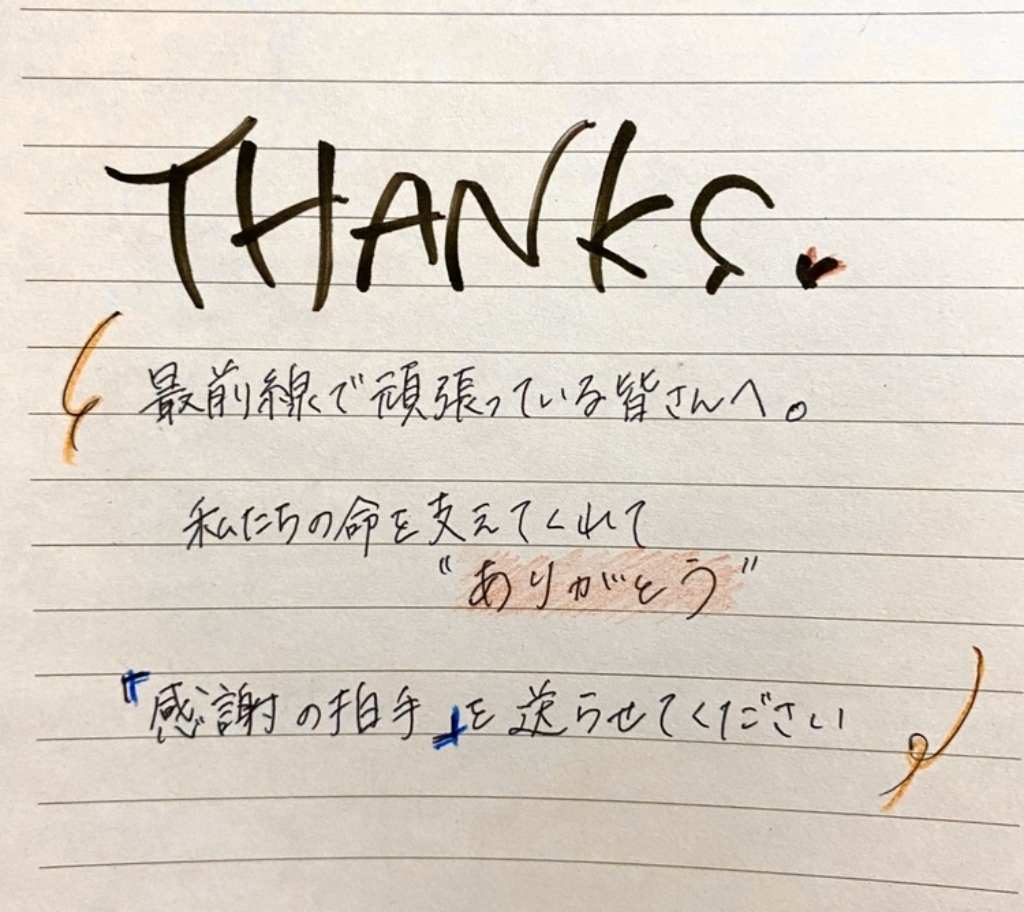 THANKS.
最前線で頑張っている皆さんへ。
私たちの命を支えてくれて
“ありがとう”
『感謝の拍手』を送らせてください